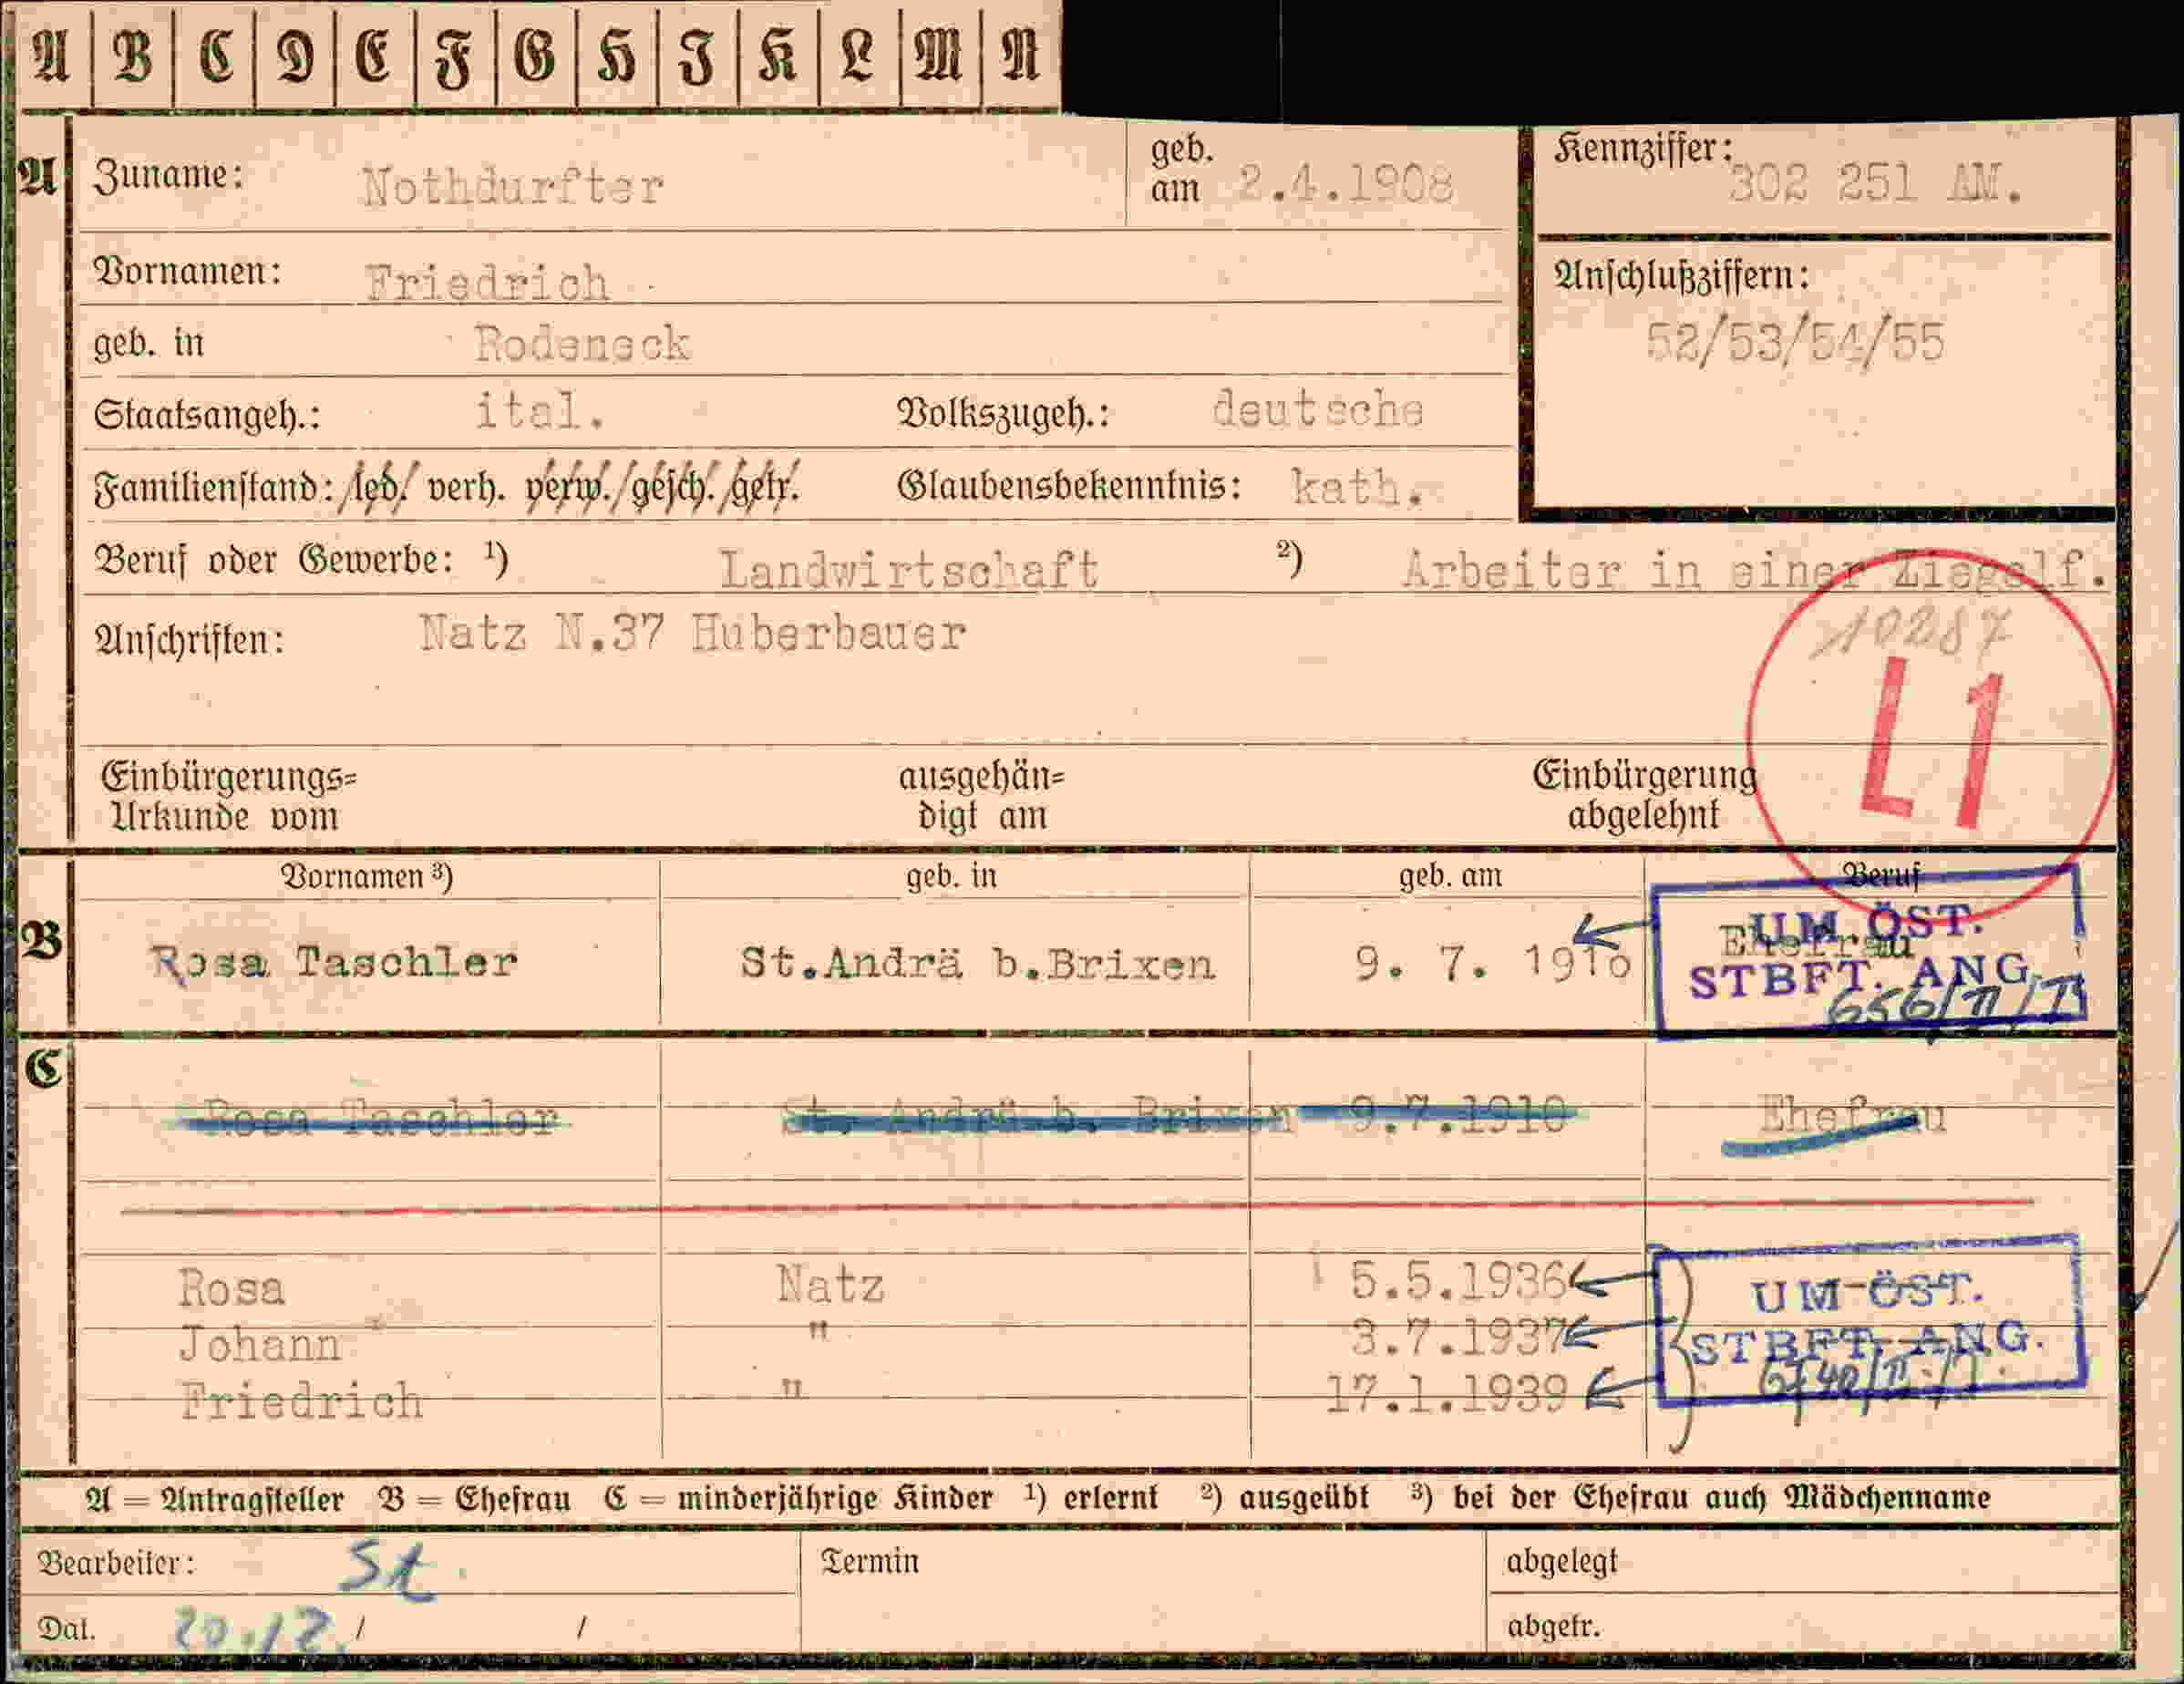 A B C D E F G H J K L M N
A Zuname: Nothdurfter geb. am 2.4.1908 Kennziffer: 302 251 AM.
Vornamen: Friedrich Anschlußziffern:
geb. in Rodeneck 52/53/54/55
Staatsangeh.: ital. Volkszugeh.: deutsche
Familienstand: led. verh. verw./gesch./getr. Glaubensbekenntnis: kath.
Beruf oder Gewerbe: ¹) Landwirtschaft ²) Arbeiter in einer Ziegelf.
Anschriften: Natz N.37 Huberbauer 10287
L1
Einbürgerungs= ausgehän= Einbürgerung
Urkunde vom digt am abgelehnt
Vornamen ³) geb. in geb. am Beruf
B Rosa Taschler St.Andrä b.Brixen 9. 7. 1910 Ehefrau
UM ÖST.
STBFT. ANG.
C
Rosa Taschler St. Andrä b. Brixen 9.7.1910 Ehefrau
Rosa Natz 5.5.1936
Johann " 3.7.1937
Friedrich " 17.1.1939
UM-ÖST.
STBFT. ANG.
A = Antragsteller B = Ehefrau C = minderjährige Kinder ¹) erlernt ²) ausgeübt ³) bei der Ehefrau auch Mädchenname
Bearbeiter: St Termin abgelegt
Dat. 20.12. / / abgetr.